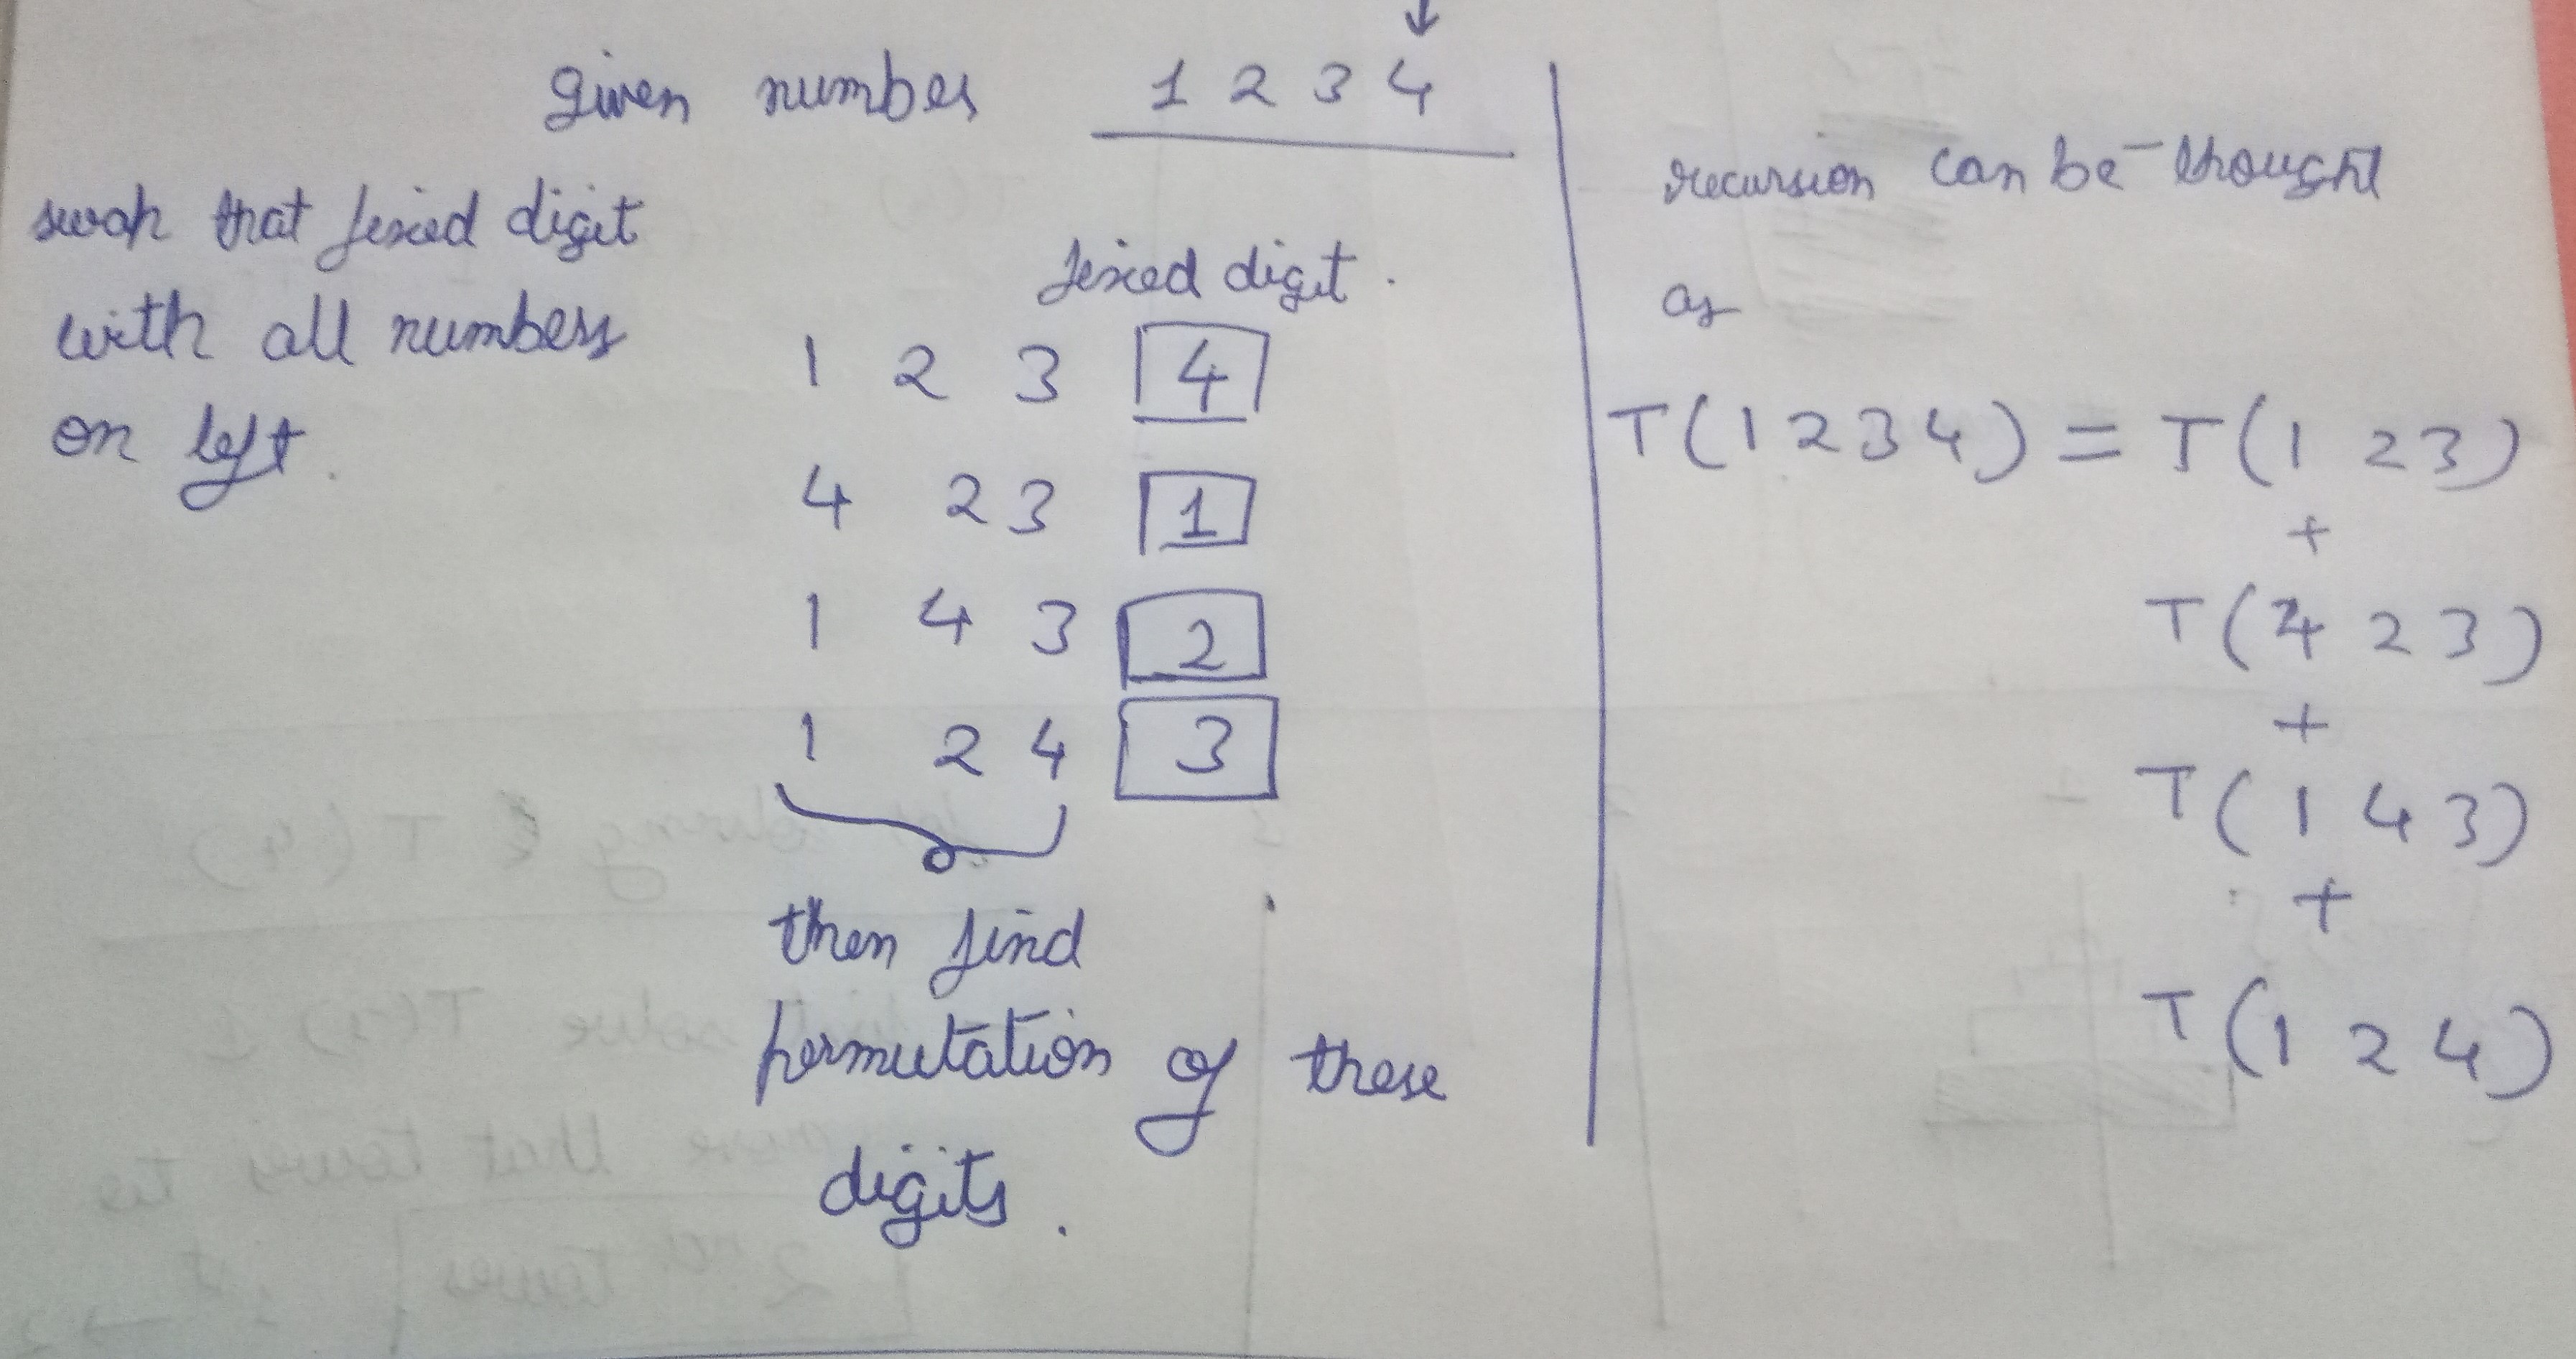 given number 1 2 3 4
swap that fixed digit
with all numbers
on left.
fixed digit.
1 2 3 4
4 2 3 1
1 4 3 2
1 2 4 3
then find
permutation of these
digits.
recursion can be thought
as
T(1 2 3 4) = T(1 2 3)
+
T(4 2 3)
+
T(1 4 3)
+
T(1 2 4)